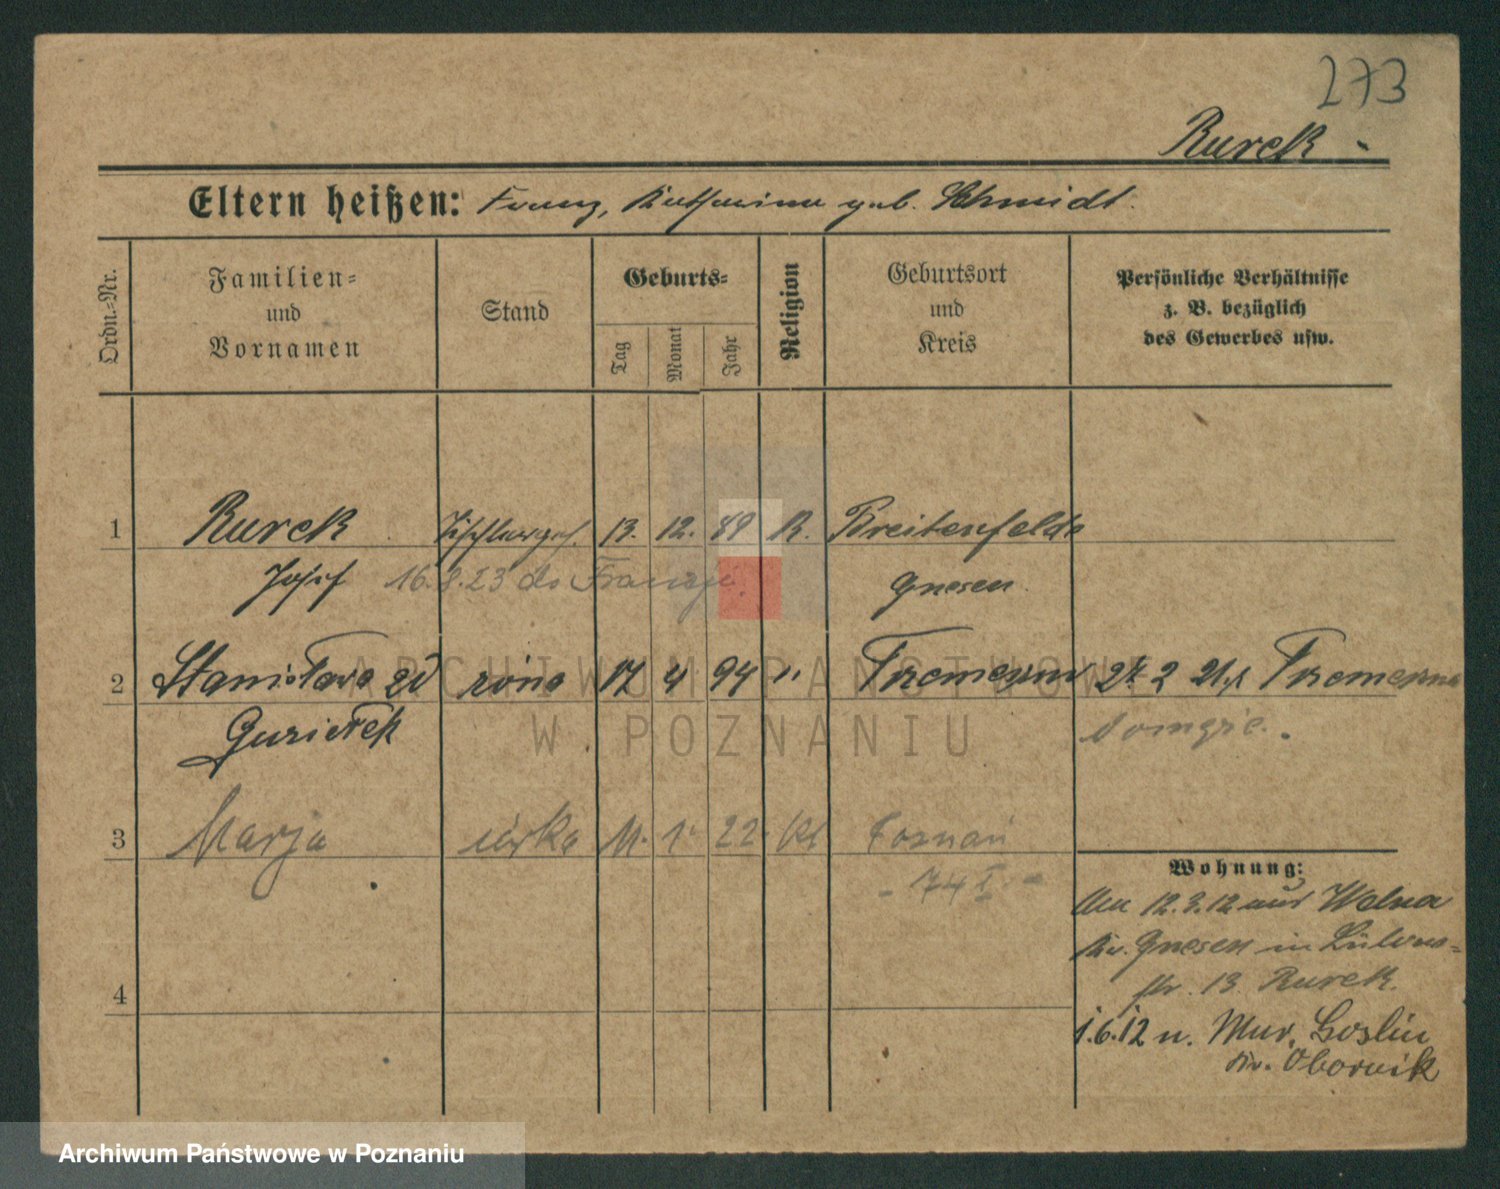 273
Rurek
Eltern heißen: Franz, Katharina geb. Schmidt.
Ordn.-Nr.
Familien-
und
Vornamen
Stand
Geburts-
Tag
Monat
Jahr
Religion
Geburtsort
und
Kreis
Persönliche Verhältnisse
z. B. bezüglich
des Gewerbes usw.
1 Rurek Tischlerges. 13. 12. 89 K. Breitenfelde
Josef 16.8.23 do Francji. Gnesen.
2 Stanisława zd żona 17 4 94 " 2 21.
Guziełek
3 Marja córka 11. 1. 22. Kt Poznań
- 74 I -
4
Wohnung:
Am 12.3.12 aus Welna
Kr. Gnesen in
str. 13 Rurek.
1.6.12 n. Mur. Goslin
Kr. Obornik
ARCHIWUM PAŃSTWOWE
W POZNANIU
Archiwum Państwowe w Poznaniu